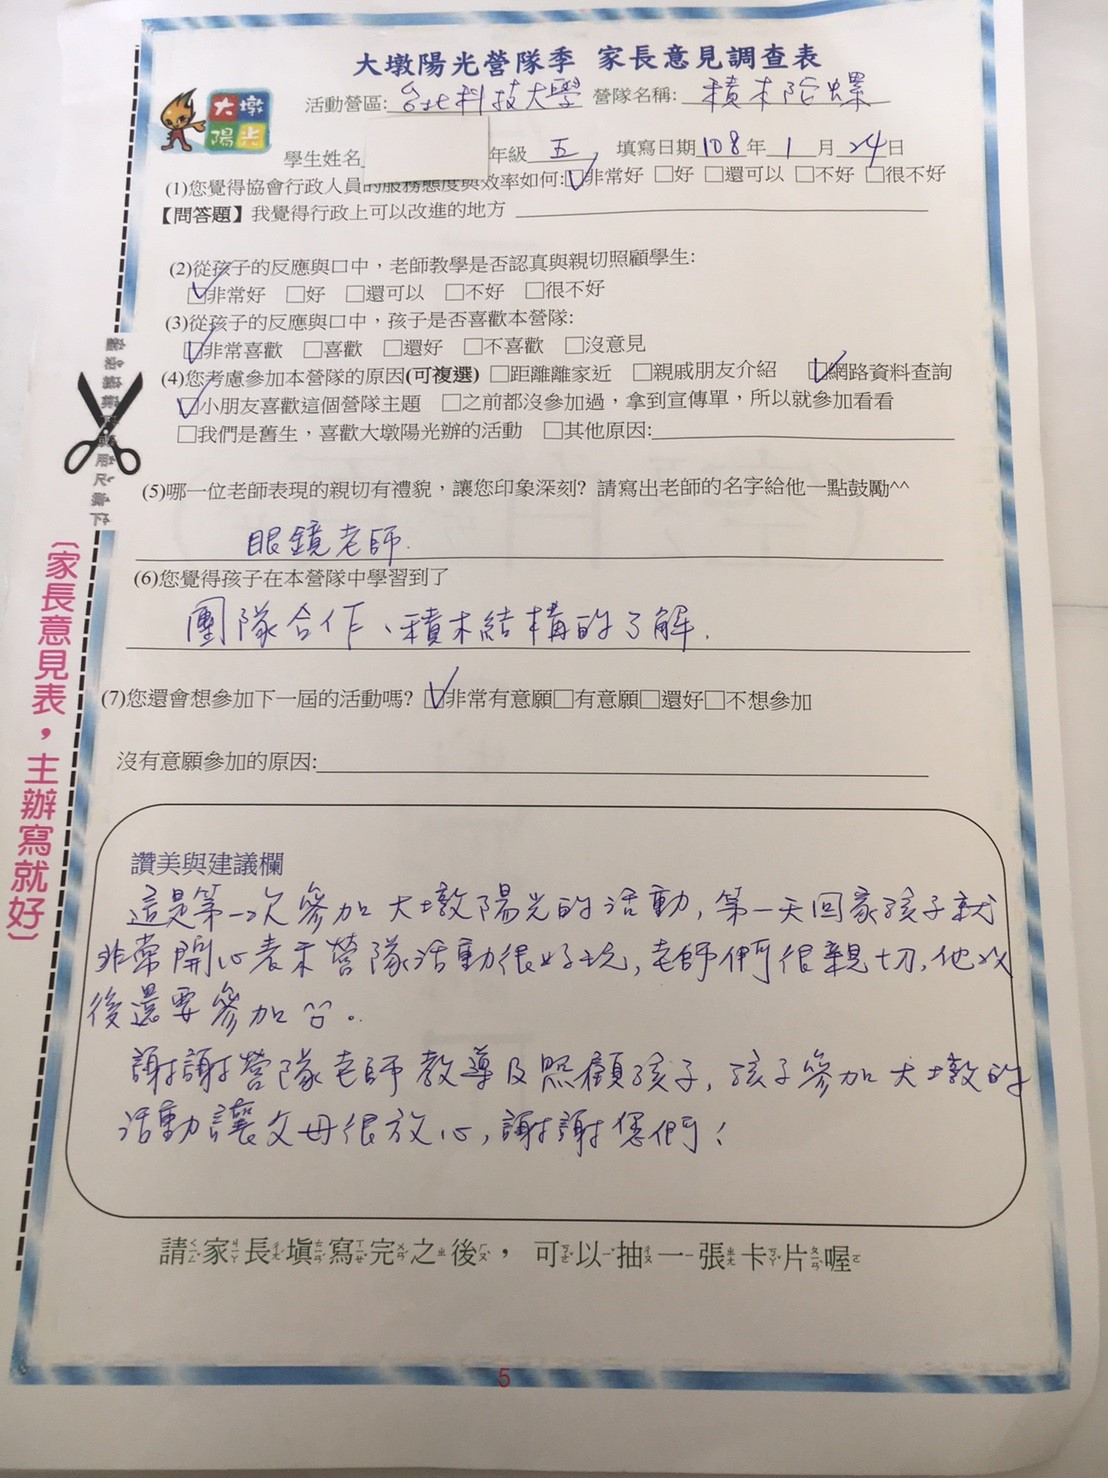 大墩陽光營隊季 家長意見調查表
大墩
陽光
活動營區: 台北科技大學 營隊名稱: 積木陀螺
學生姓名 年級 五 填寫日期 108 年 1 月 24 日
(1)您覺得協會行政人員的服務態度與效率如何:☑非常好 □好 □還可以 □不好 □很不好
【問答題】我覺得行政上可以改進的地方
(2)從孩子的反應與口中，老師教學是否認真與親切照顧學生:
☑非常好 □好 □還可以 □不好 □很不好
(3)從孩子的反應與口中，孩子是否喜歡本營隊:
☑非常喜歡 □喜歡 □還好 □不喜歡 □沒意見
(4)您考慮參加本營隊的原因(可複選) □距離離家近 □親戚朋友介紹 ☑網路資料查詢
☑小朋友喜歡這個營隊主題 □之前都沒參加過，拿到宣傳單，所以就參加看看
□我們是舊生，喜歡大墩陽光辦的活動 □其他原因:
(5)哪一位老師表現的親切有禮貌，讓您印象深刻? 請寫出老師的名字給他一點鼓勵^^
眼鏡老師.
(6)您覺得孩子在本營隊中學習到了
團隊合作、積木結構的了解.
(7)您還會想參加下一屆的活動嗎? ☑非常有意願□有意願□還好□不想參加
沒有意願參加的原因:
讚美與建議欄
這是第一次參加大墩陽光的活動, 第一天回家孩子就
非常開心表示營隊活動很好玩, 老師們很親切, 他以
後還要參加^^。
謝謝營隊老師教導及照顧孩子, 孩子參加大墩的
活動讓父母很放心, 謝謝您們!
請家長填寫完之後，可以抽一張卡片喔
〔家長意見表，主辦寫就好〕
5